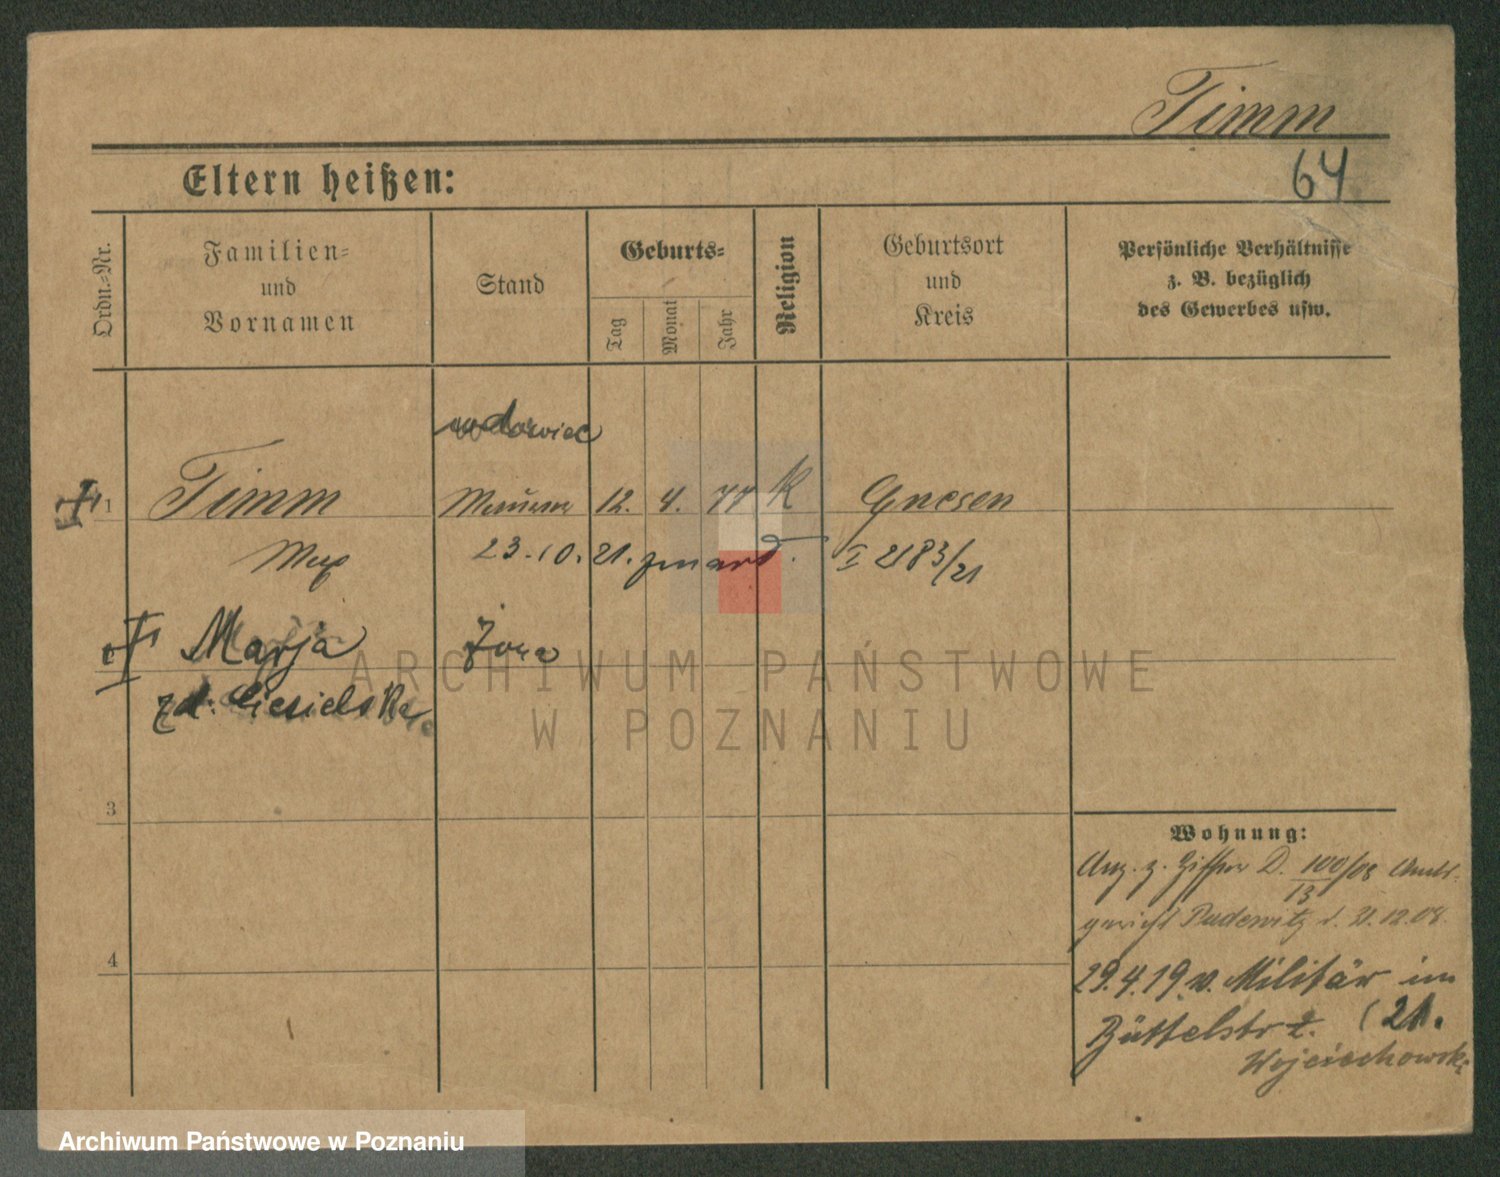 Timm
64
Eltern heißen:
Ordn.-Nr.
Familien-
und
Vornamen
Stand
Geburts-
Tag
Monat
Jahr
Religion
Geburtsort
und
Kreis
Persönliche Verhältnisse
z. B. bezüglich
des Gewerbes usw.
wdowiec
1 Timm 12. 4. 77 K Gnesen
Max 23.10.21. zmarł. I 2183/21
Marja Żona
zd. Ciesielska
3
4
Wohnung:
Anz. z. D. 100/08 Amts-
13
gericht Pudewitz v. 31.12.08.
29.4.19. v. Militär im
Büttelstr (21.
Wojciechowski
ARCHIWUM PAŃSTWOWE
W POZNANIU
Archiwum Państwowe w Poznaniu